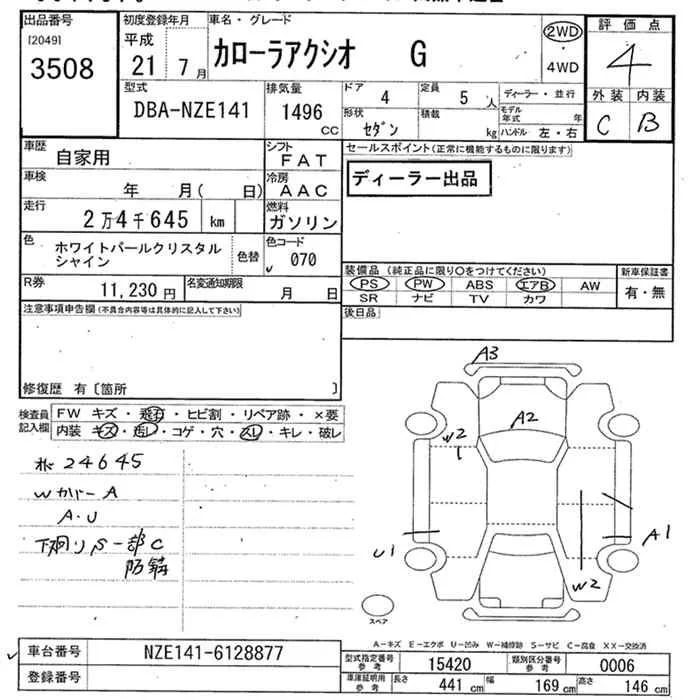 出品番号
[2049]
3508
初度登録年月
平成
21 7月
車名・グレード
カローラアクシオ G
2WD
・
4WD
評価点
4
外装 内装
C B
型式
DBA-NZE141
排気量
1496
cc
ドア
4
定員
5 人
形状
セダン
積載
kg
ディーラー・並行
モデル年式 年
ハンドル 左・右
車歴
自家用
シフト
FAT
車検
年 月( 日)
冷房
AAC
走行
2万4千645 km
燃料
ガソリン
色
ホワイトパールクリスタル
シャイン
色替
色コード
070
R券
11,230円
名変通知期限
月 日
セールスポイント(正常に機能するものに限ります)
ディーラー出品
装備品(純正品に限り○をつけてください)
PS PW ABS エアB AW
SR ナビ TV カワ
新車保証書
有・無
後日品
注意事項申告欄(不具合内容等は具体的に記入して下さい)
修復歴 有〔箇所 〕
検査員
記入欄
FW キズ・飛石・ヒビ割・リペア跡・×要
内装 キズ・汚レ・コゲ・穴・スレ・キレ・破レ
24645
Wカバー A
A・U
下廻りS一部C
防錆
A3
A2
W2
U1
A1
W2
スペア
A−キズ E−エクボ U−凹み W−補修跡 S−サビ C−腐食 XX−交換済
車台番号
NZE141-6128877
登録番号
型式指定番号
参考
15420
類別区分番号
参考
0006
車庫証明用
参考
長さ
441 cm
幅
169 cm
高さ
146 cm